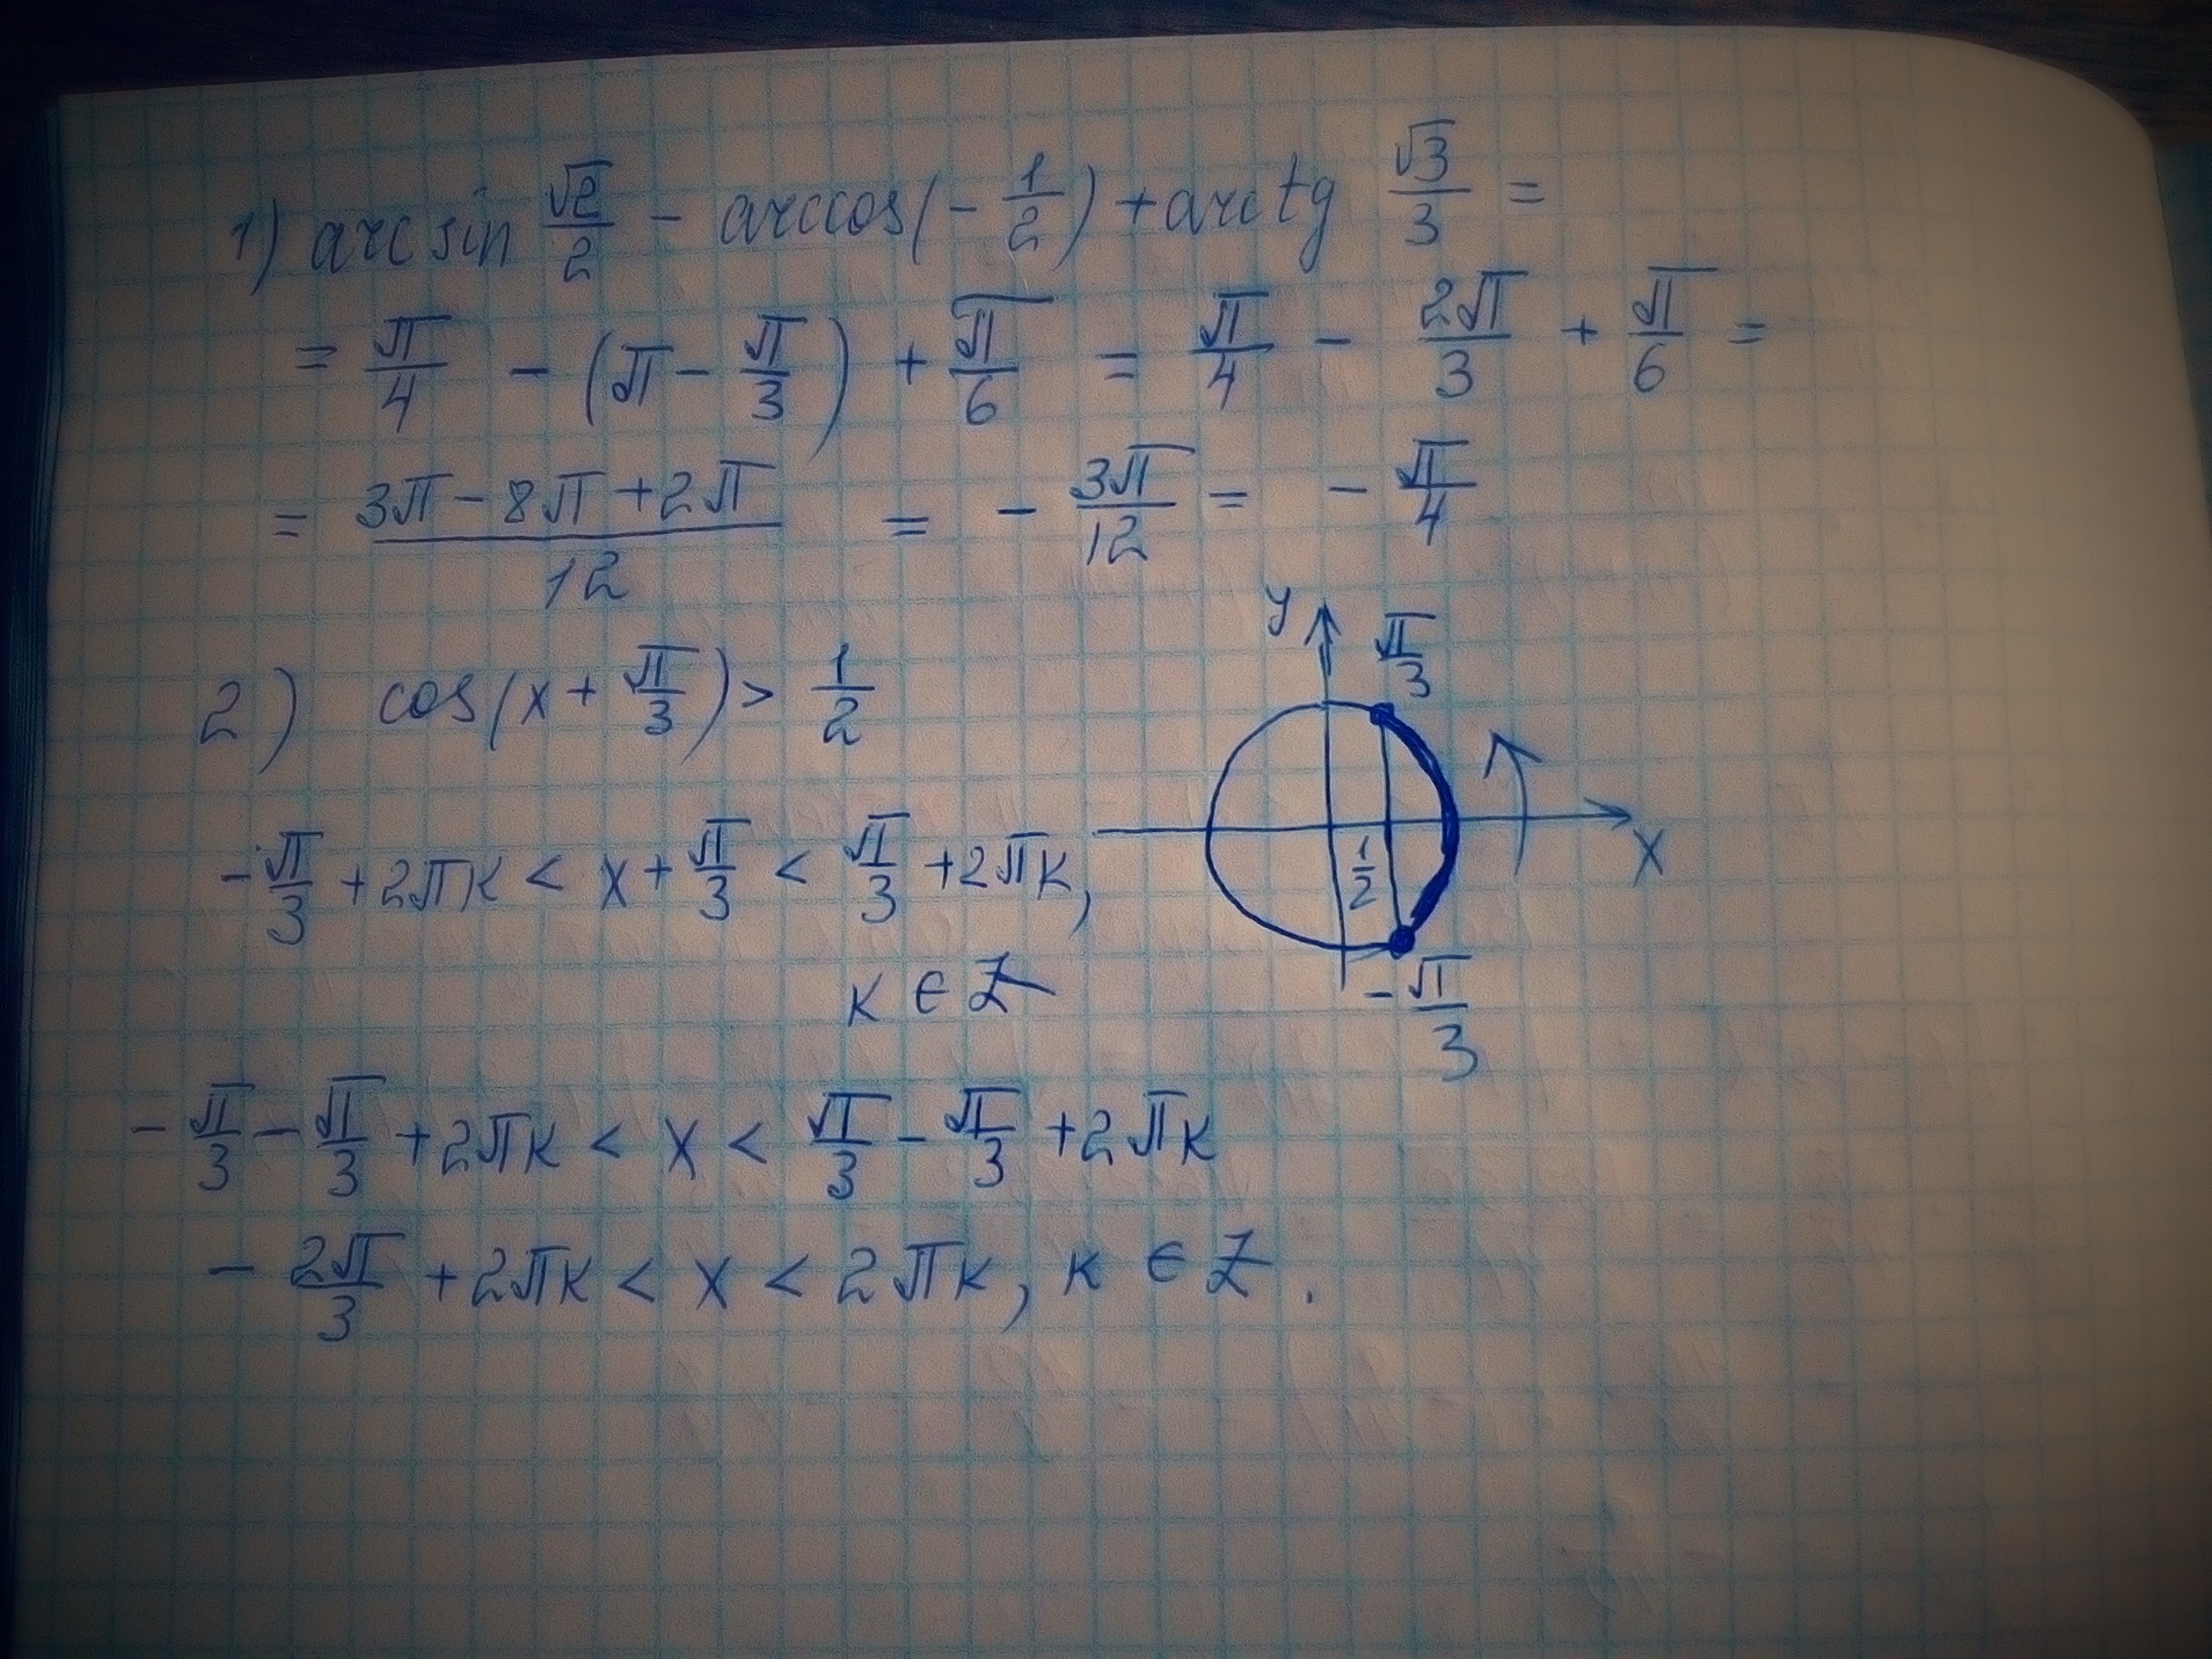 1) arcsin √2/2 - arccos(-1/2) + arctg √3/3 =
= π/4 - (π - π/3) + π/6 = π/4 - 2π/3 + π/6 =
= (3π - 8π + 2π)/12 = - 3π/12 = - π/4
2) cos(x + π/3) > 1/2
y
π/3
1/2
x
-π/3
-π/3 + 2πк < x + π/3 < π/3 + 2πк,
к ∈ Z
-π/3 - π/3 + 2πк < x < π/3 - π/3 + 2πк
- 2π/3 + 2πк < x < 2πк, к ∈ Z.